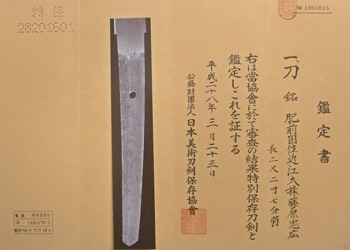 No 1005015
鑑定書
一、刀 銘 肥前国住近江大掾藤原忠広
長二尺二寸七分弱
右は當協會に於て審査の結果特別保存刀剣と
鑑定しこれを証する
平成二十八年三月二十三日
公益財団法人日本美術刀剣保存協會
特保
28201601